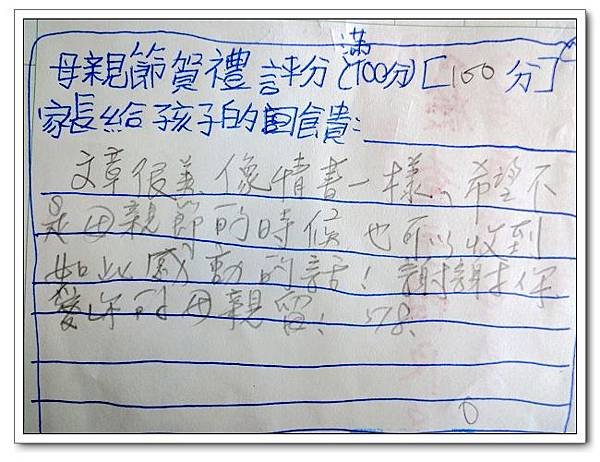 母親節賀禮評分(滿100分)[100分]
家長給孩子的回饋:
文章很美、像情書一樣、希望不
是母親節的時候也可以收到
如此感動的話!謝謝你
愛你的母親留! 5/8.